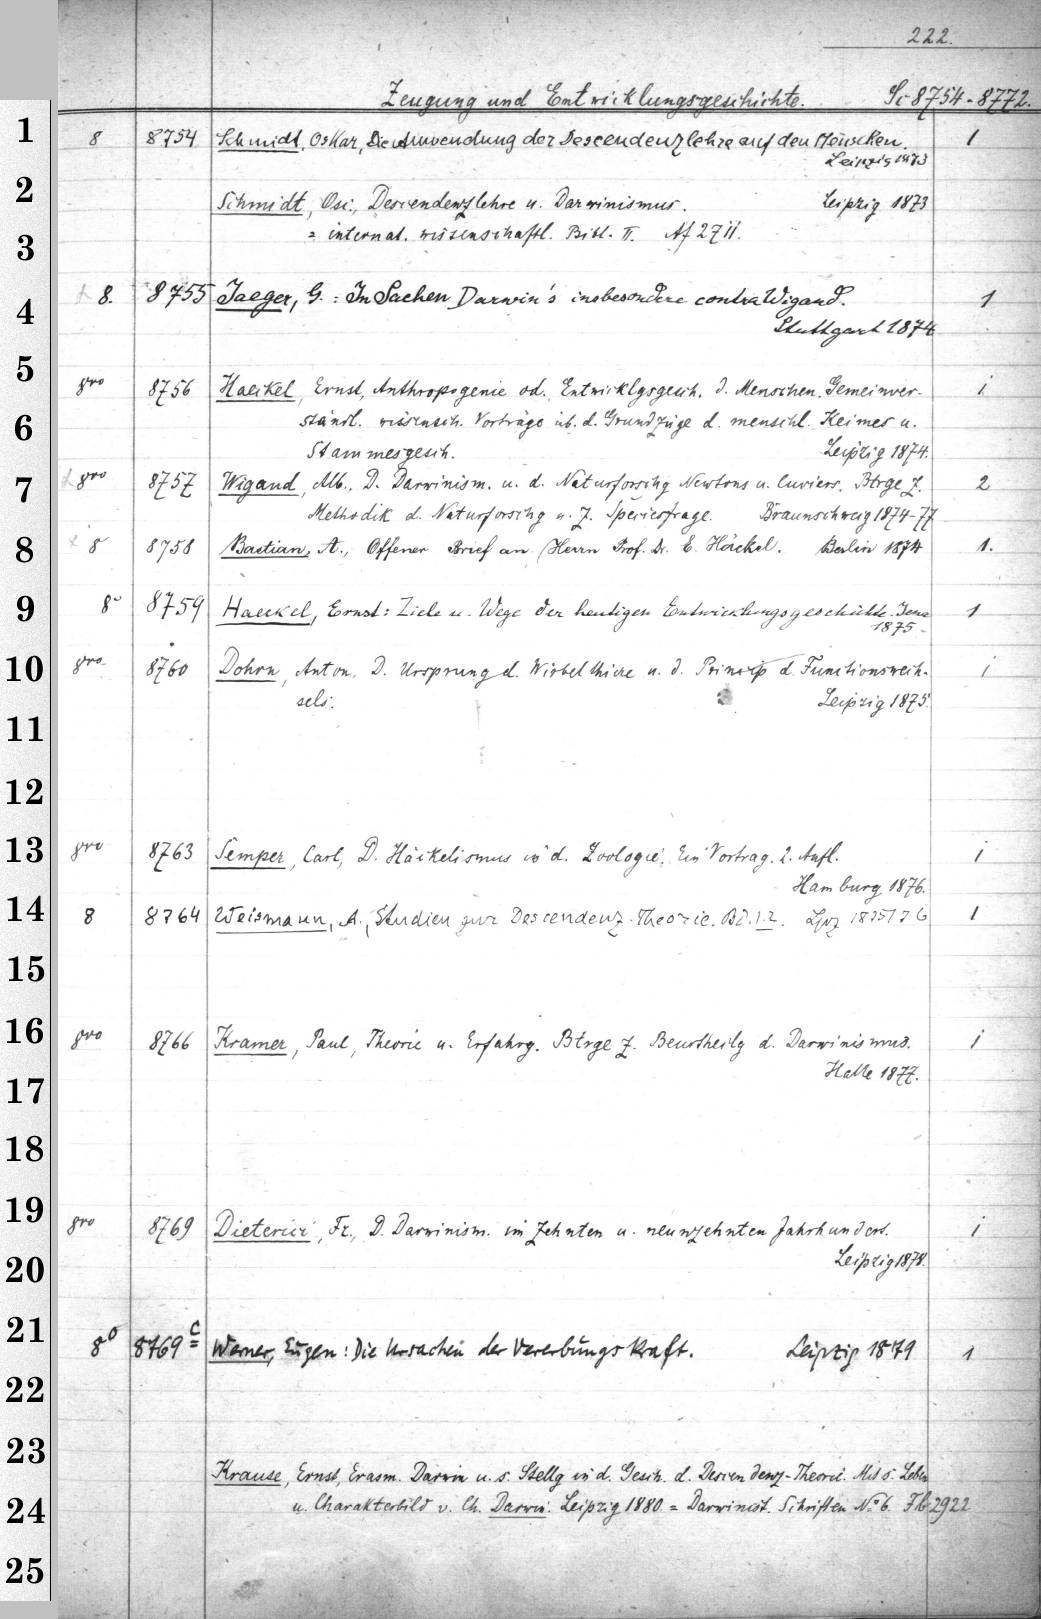 222.
Zeugung und Entwicklungsgeschichte. Si 8754-8772.
1
8 8754 Schmidt, Oskar, Die Anwendung der Descendenzlehre auf den Menschen. 1
Leipzig 1873
2
Schmidt, Osc., Descendenzlehre u. Darwinismus. Leipzig 1873
3
= internat. wissenschaftl. Bibl. II. Af 2711.
4
8. 8755 Jaeger, G.: In Sachen Darwin's insbesondere contra Wigand. 1
Stuttgart 1874
5
8vo 8756 Haeckel, Ernst, Anthropogenie od. Entwicklgsgesch. d. Menschen. Gemeinver- 1
6
ständl. wissensch. Vorträge üb. d. Grundzüge d. menschl. Keimes u.
Stammesgesch. Leipzig 1874.
7
8vo 8757 Wigand, Alb., D. Darwinism. u. d. Naturforschg Newtons u. Cuviers. Btrge z. 2
Methodik d. Naturforschg u. z. Speciesfrage. Braunschweig 1874-77
8
8 8758 Bastian, A., Offener Brief an Herrn Prof. Dr. E. Häckel. Berlin 1874 1.
9
8° 8759 Haeckel, Ernst: Ziele u. Wege der heutigen Entwicklungsgeschichte. Jena 1
1875.
10
8vo 8760 Dohrn, Anton, D. Ursprung d. Wirbelthiere u. d. Princip d. Functionswech- 1
11
sels. Leipzig 1875.
12
13
8vo 8763 Semper, Carl, D. Häckelismus in d. Zoologie. Ein Vortrag. 2. Aufl. 1
Hamburg 1876.
14
8 8764 Weismann, A., Studien zur Descendenz-Theorie. Bd. 1.2. Lpz 1875/76 1
15
16
8vo 8766 Kramer, Paul, Theorie u. Erfahrg. Btrge z. Beurtheilg d. Darwinismus. 1
17
Halle 1877.
18
19
8vo 8769 Dieterici, Fr., D. Darwinism. im zehnten u. neunzehnten Jahrhundert. 1
20
Leipzig 1878.
21
8° 8769c Werner, Eugen: Die Ursachen der Vererbungskraft. Leipzig 1879 1
22
23
Krause, Ernst, Erasm. Darwin u. s. Stellg in d. Gesch. d. Descendenz-Theorie. Mit s. Leben
24
u. Charakterbild v. Ch. Darwin. Leipzig 1880 = Darwinist. Schriften No 6. Fb 2922
25